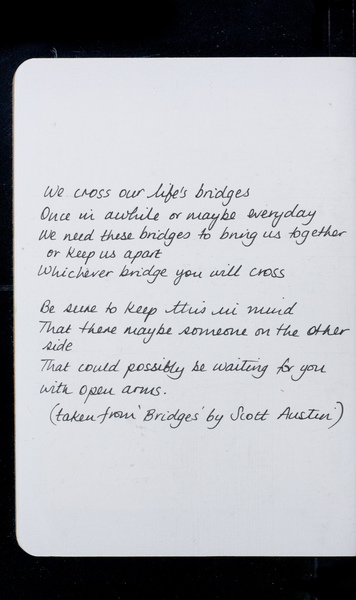 We cross our life's bridges
Once in awhile or maybe everyday
We need these bridges to bring us together
or keep us apart
Whichever bridge you will cross
Be sure to keep this in mind
That there maybe someone on the other
side
That could possibly be waiting for you
with open arms.
(taken from 'Bridges' by Scott Austin)